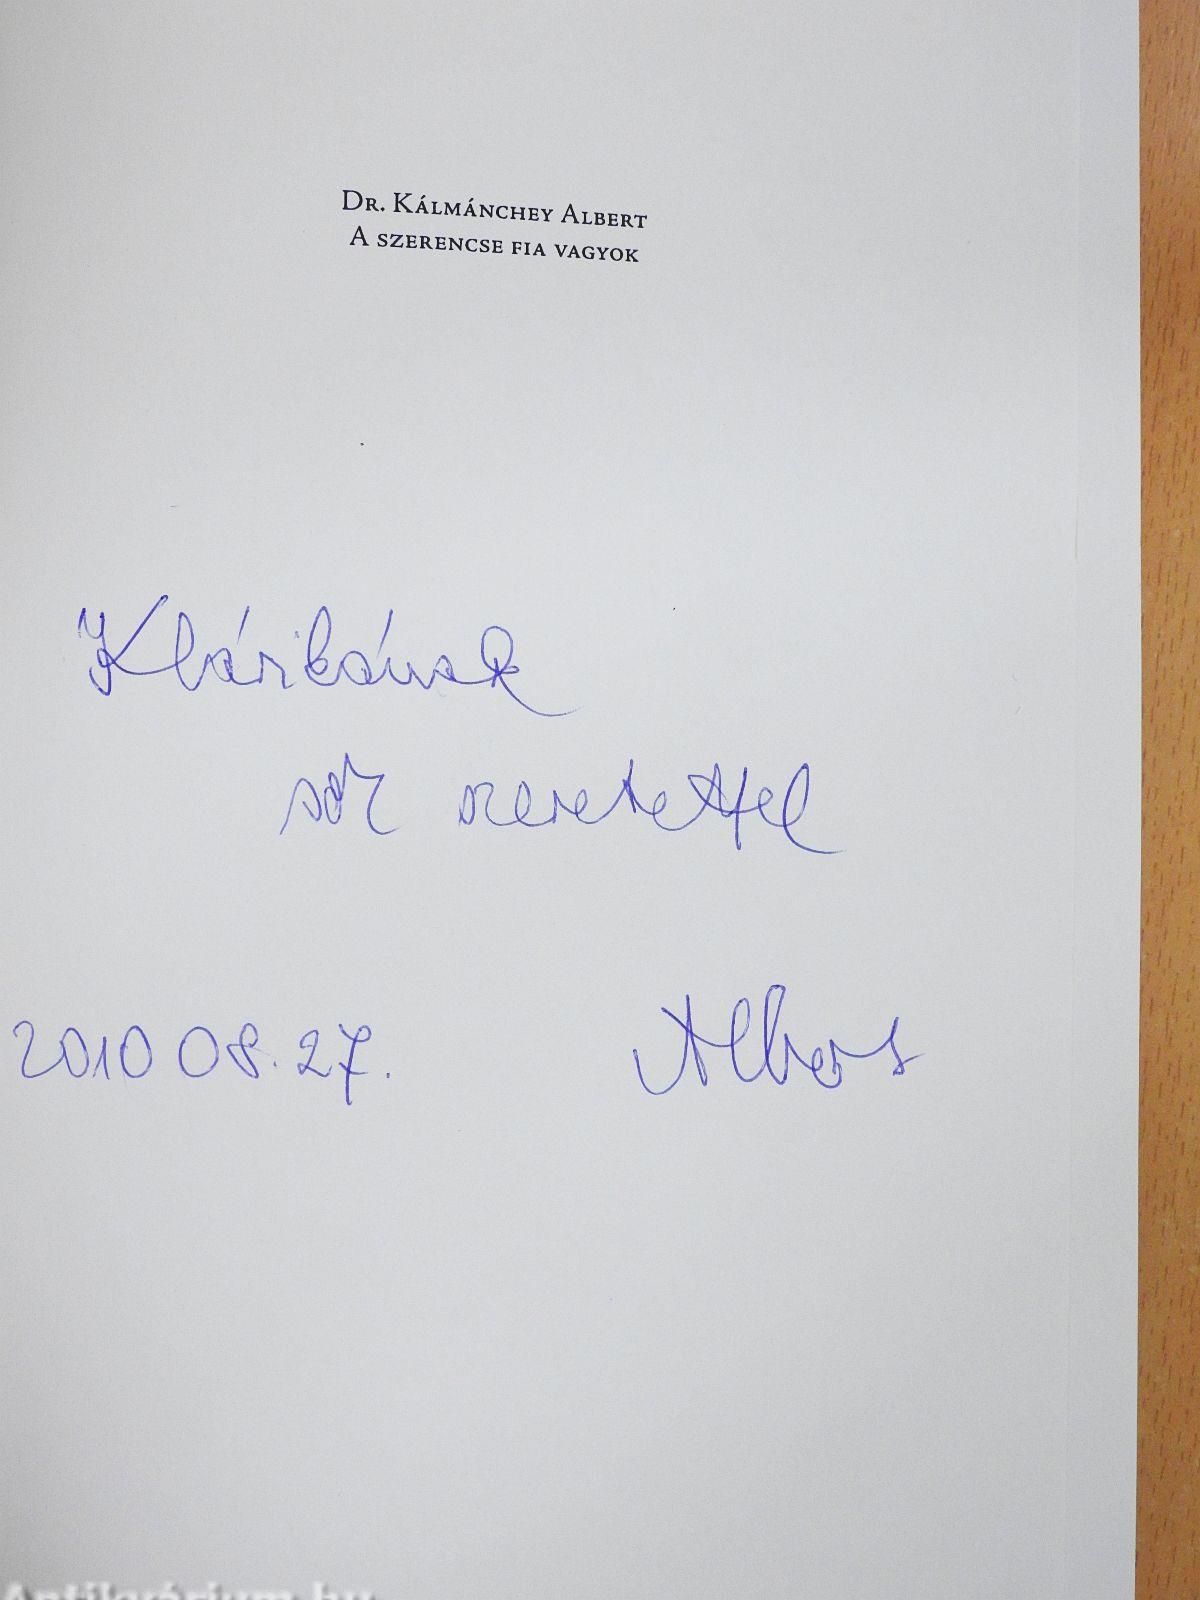 Dr. Kálmánchey Albert
A szerencse fia vagyok
Klárikának
sok szeretettel
2010 08. 27. Albert
Antikvárium.hu